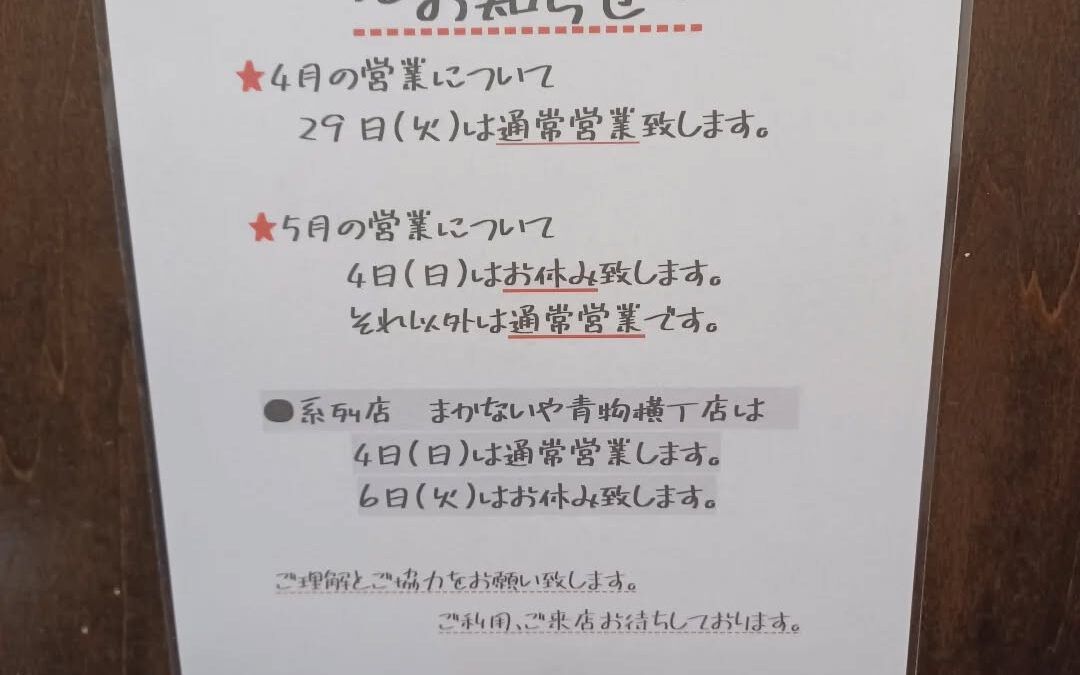 ～お知らせ～
★4月の営業について
29日(火)は通常営業致します。
★5月の営業について
4日(日)はお休み致します。
それ以外は通常営業です。
●系列店 まかないや青物横丁店は
4日(日)は通常営業します。
6日(火)はお休み致します。
ご理解とご協力をお願い致します。
ご利用、ご来店お待ちしております。